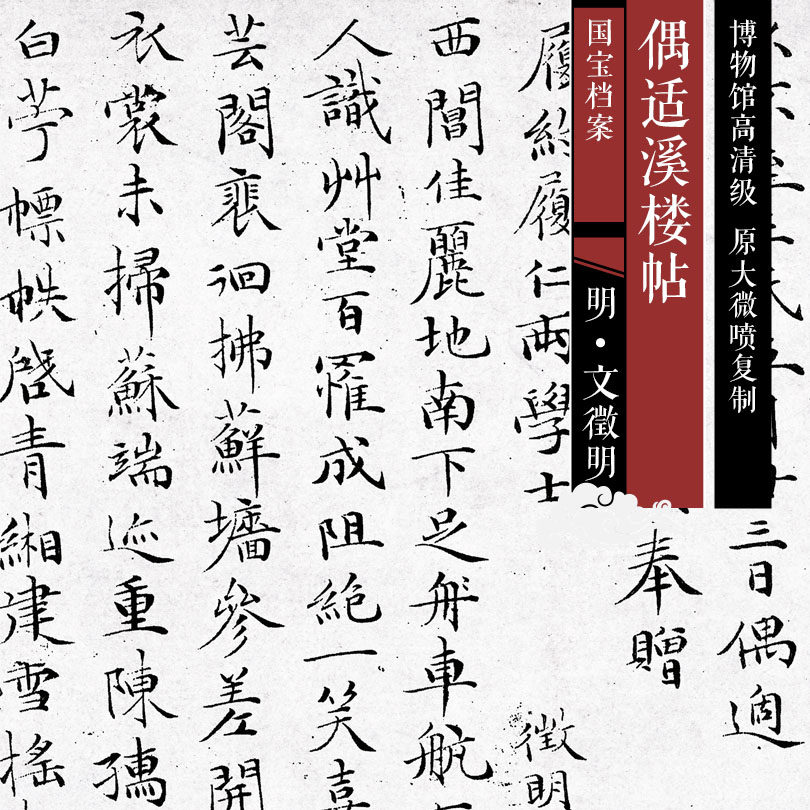 博物馆高清级 原大微喷复制
偶适溪楼帖
国宝档案
明·文徵明
三日偶適
奉贈
履約履仁兩學士
徵明
西閶佳麗地南下足舟車航
人識艸堂百罹成阻絶一笑喜
芸閣裵徊拂蘚墻參差開
衣裳未掃蘇端迹重陳孺
白苧幖帙啓青緗建雪榣